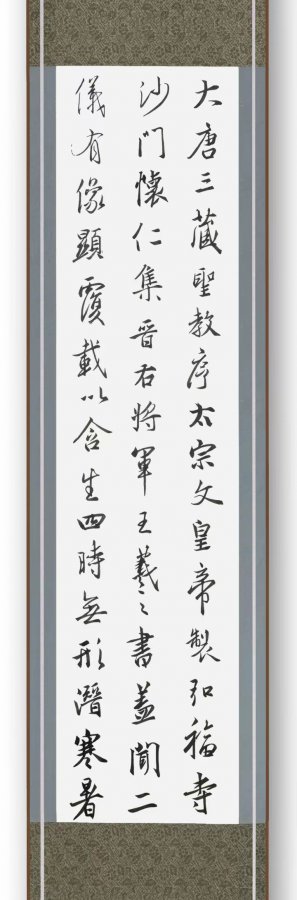 大唐三藏聖教序太宗文皇帝製弘福寺
沙門懷仁集晉右將軍王羲之書蓋聞二
儀有像顯覆載以含生四時無形潛寒暑